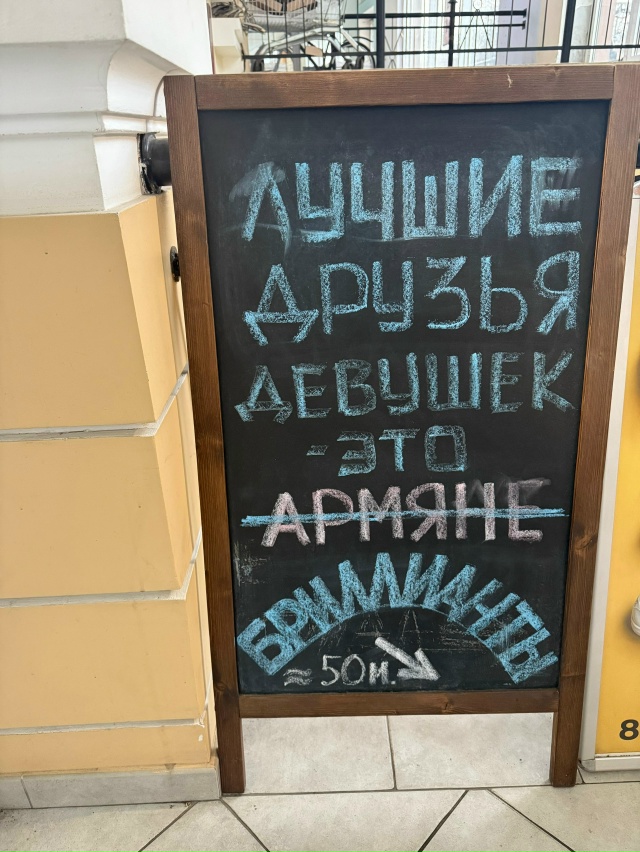 ЛУЧШИЕ
ДРУЗЬЯ
ДЕВУШЕК
-ЭТО
АРМЯНЕ
БРИЛЛИАНТЫ
≈50м.
8